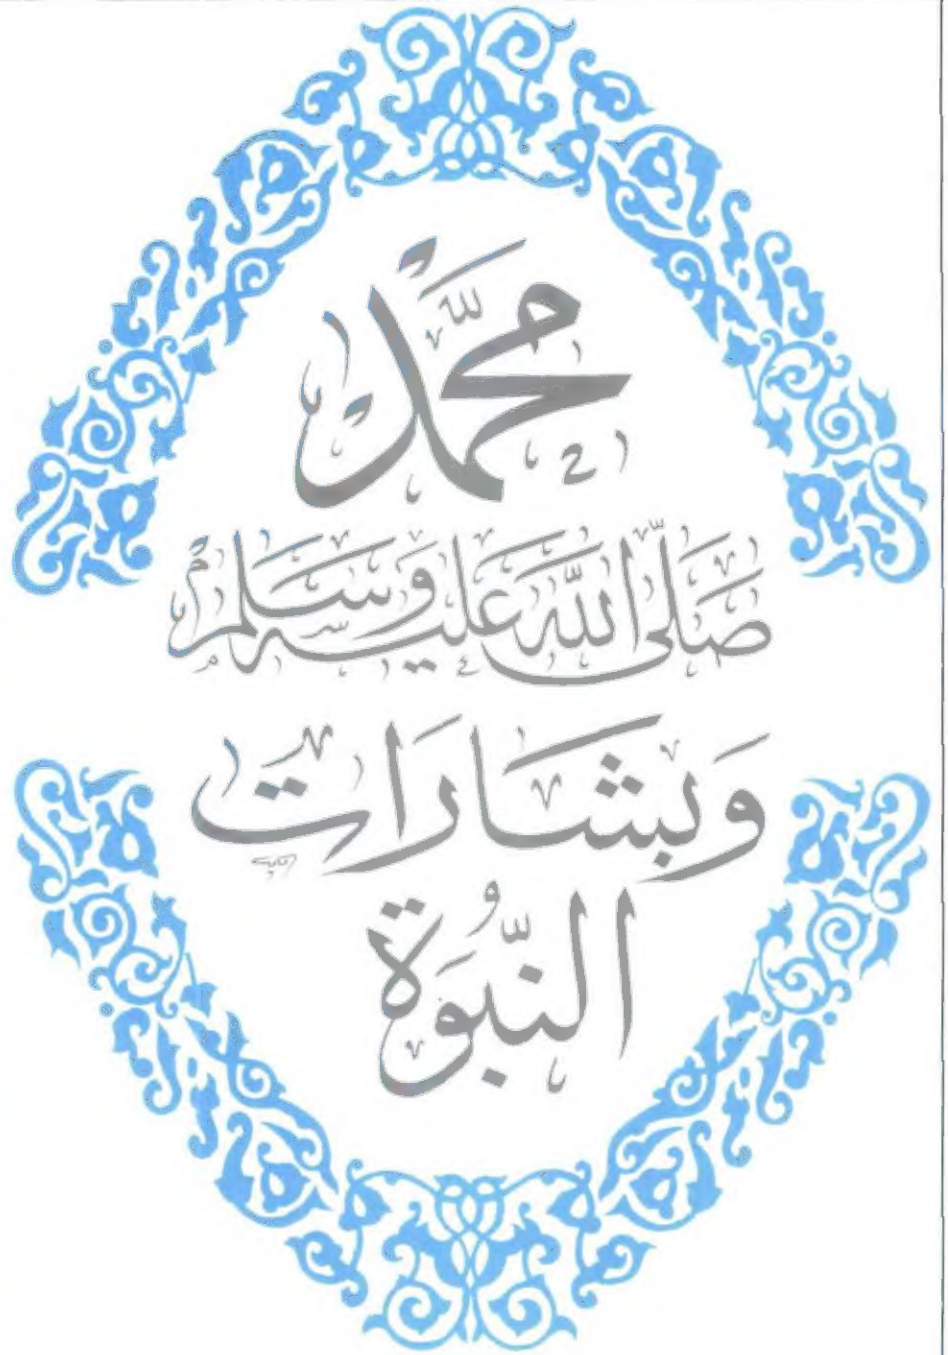 مُحَمَّد
صَلَّى اللَّه عَلَيْهِ وَسَلَّم
وَبشَارَات
النّبُوَة